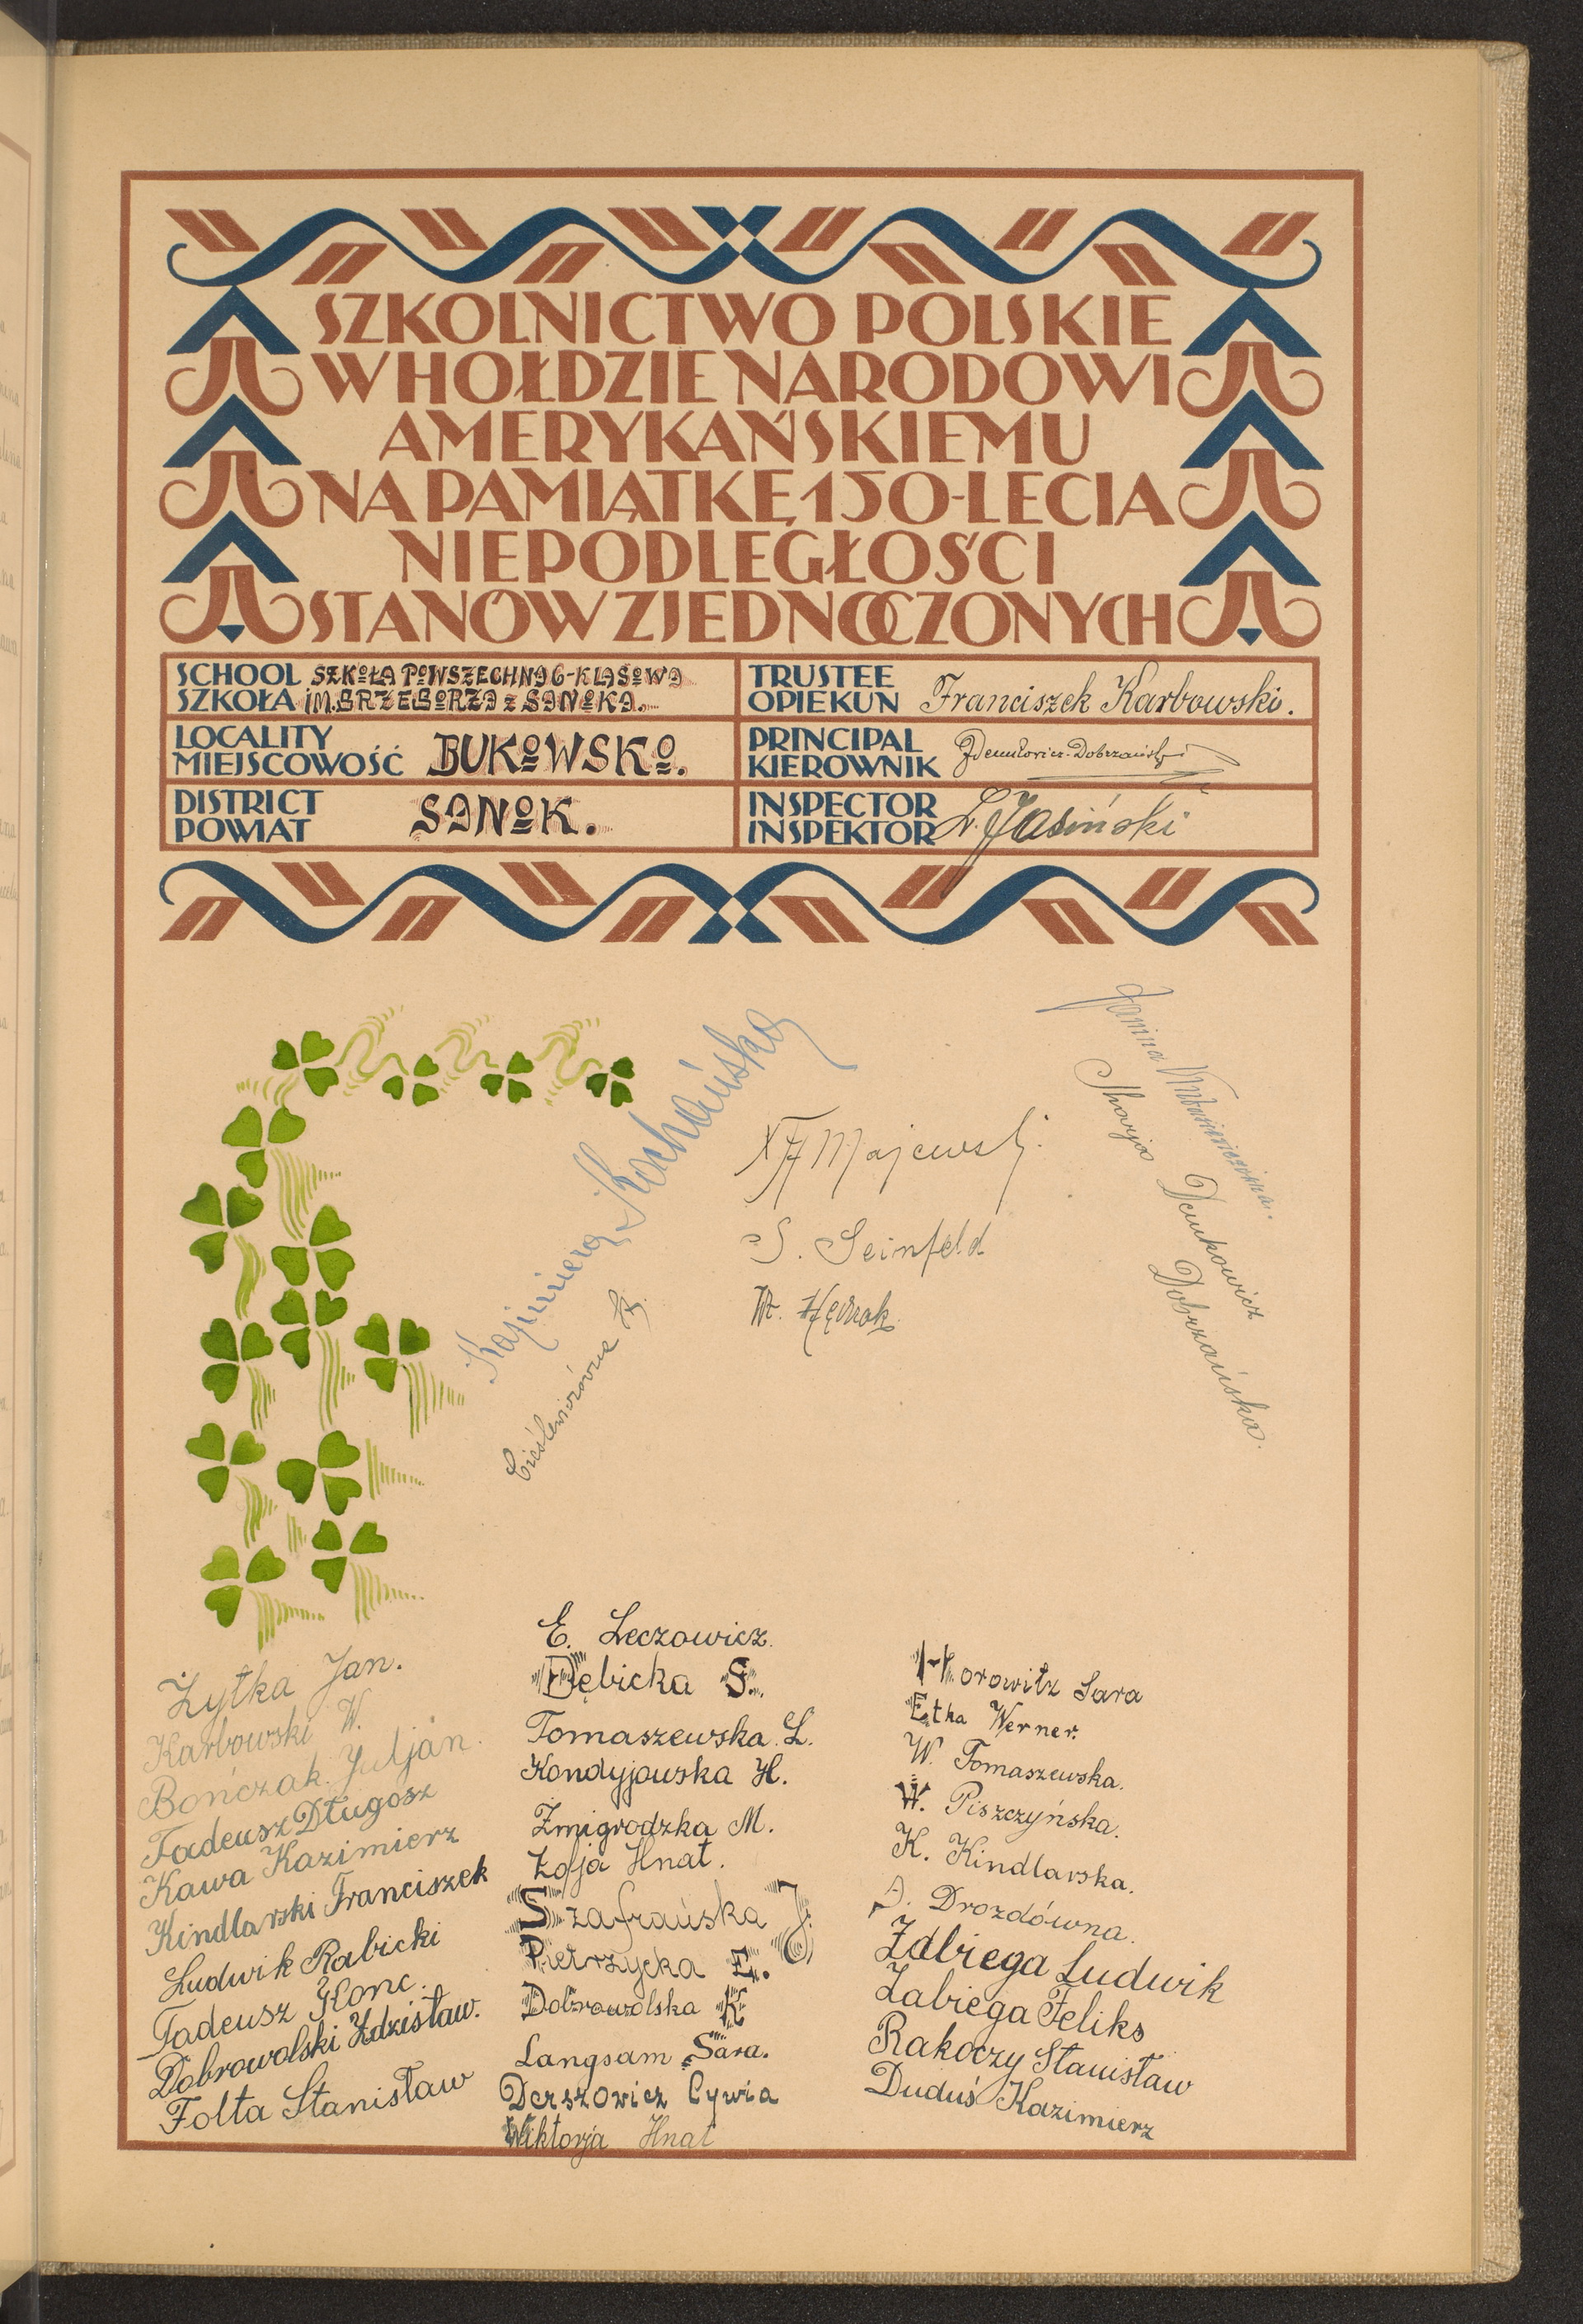 SZKOLNICTWO POLSKIE
W HOŁDZIE NARODOWI
AMERYKAŃSKIEMU
NA PAMIĄTKĘ 150-LECIA
NIEPODLEGŁOŚCI
STANÓW ZJEDNOCZONYCH
SCHOOL
SZKOŁA
SZKOŁA POWSZECHNA 6-KLASOWA
IM. GRZEGORZA z SANOKA.
TRUSTEE
OPIEKUN
Franciszek Karbowski.
LOCALITY
MIEJSCOWOŚĆ
BUKOWSKO.
PRINCIPAL
KIEROWNIK
DISTRICT
POWIAT
SANOK.
INSPECTOR
INSPEKTOR
L. Jasiński
Kazimiera Kochańska
Cieślewiczówna
Majewski
S. Seinfeld
W. Hędrak
Janina
Marja Demkowicz
Dobrzańska.
Żytka Jan.
Karbowski W.
Bończak Juljan.
Tadeusz Długosz
Kawa Kazimierz
Kindlarski Franciszek
Ludwik Rabicki
Tadeusz Konc.
Dobrowolski Zdzisław.
Folta Stanisław
E. Leczowicz.
Dębicka S.
Tomaszewska L.
Kondyjowska H.
Żmigrodzka M.
Zofja Hnat.
Szafrańska J.
Pietrzycka E.
Dobrowolska K.
Langsam Sara.
Derszowicz Cywia
Wiktorja Hnat
Horowitz Sara
Etka Werner.
W. Tomaszewska.
W. Piszczyńska.
K. Kindlarska.
A. Drozdówna.
Zdbiega Ludwik
Zabiega Feliks
Rakoczy Stanisław
Duduś Kazimierz